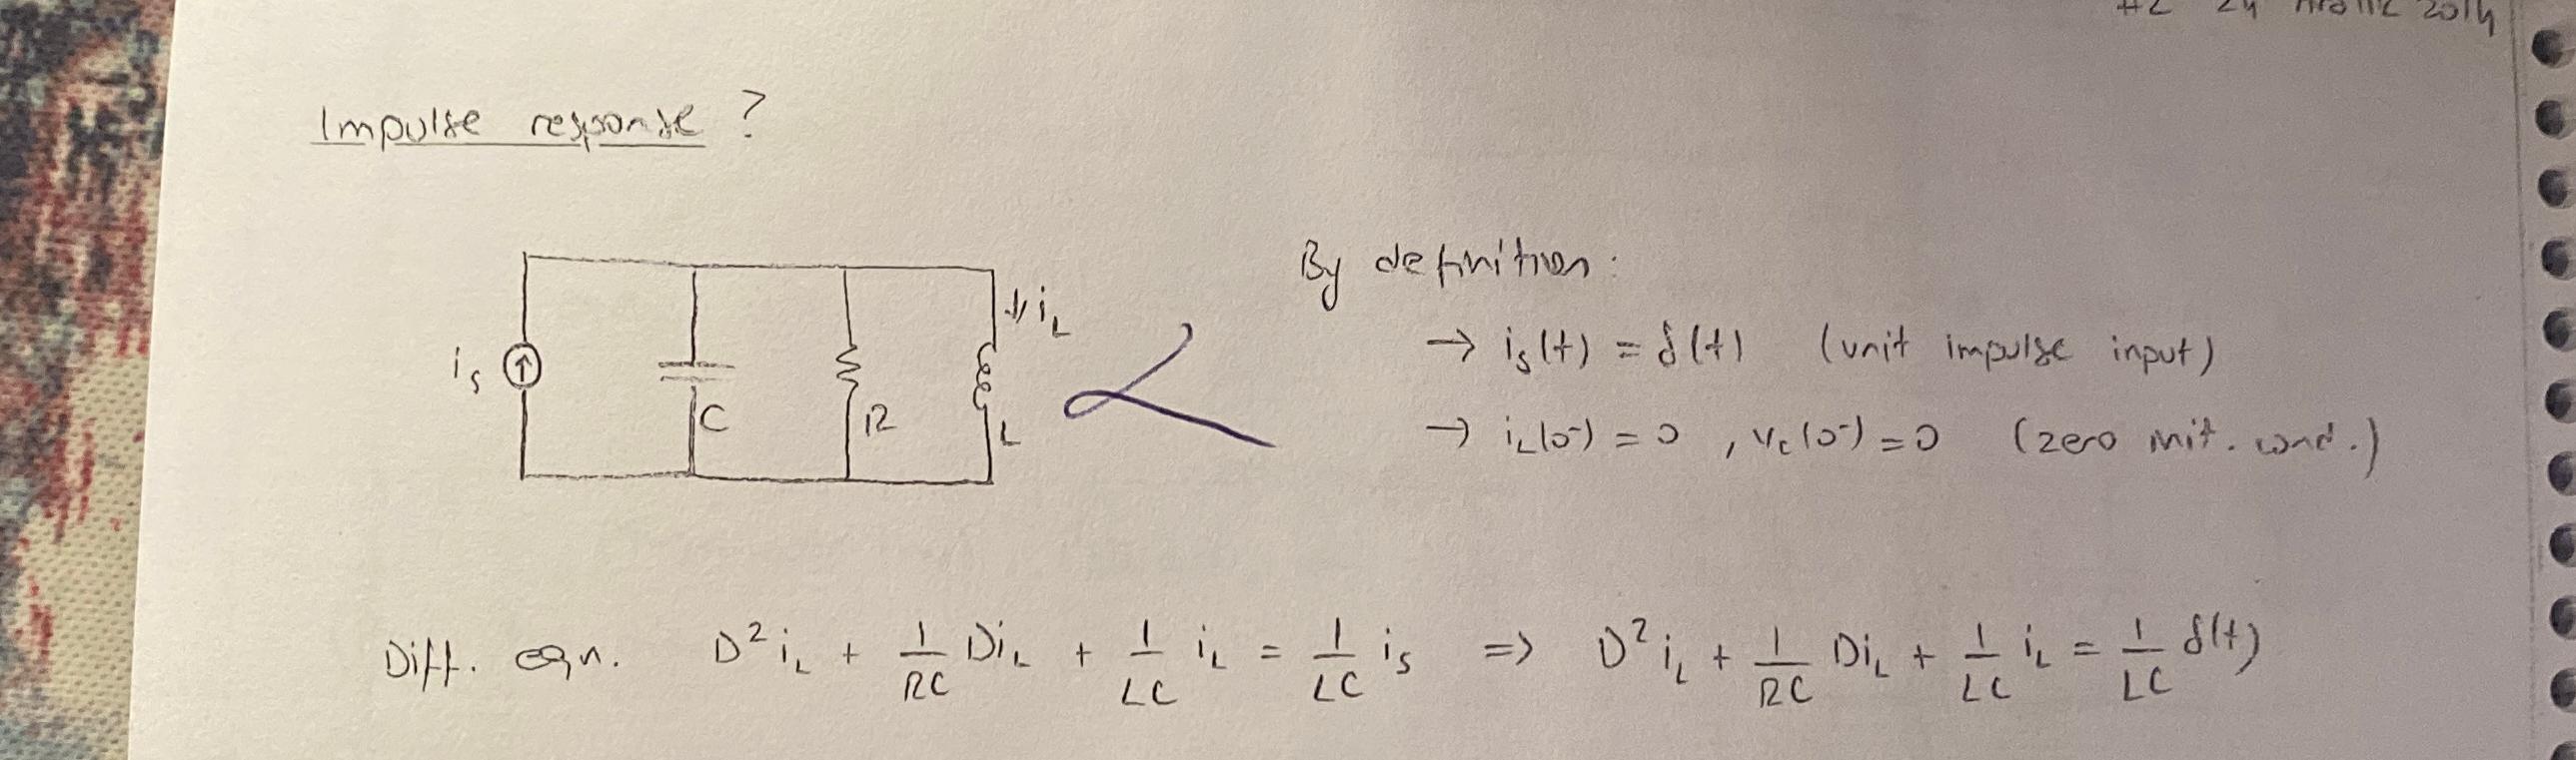 #2 24 Aralık 2014
Impulse response ?
By definition:
→ is(t) = δ(t) (unit impulse input)
→ iL(0-) = 0 , vc(0-) = 0 (zero init. cond.)
is
C
R
iL
L
Diff. eqn. D² iL + 1/RC DiL + 1/LC iL = 1/LC is => D² iL + 1/RC DiL + 1/LC iL = 1/LC δ(t)